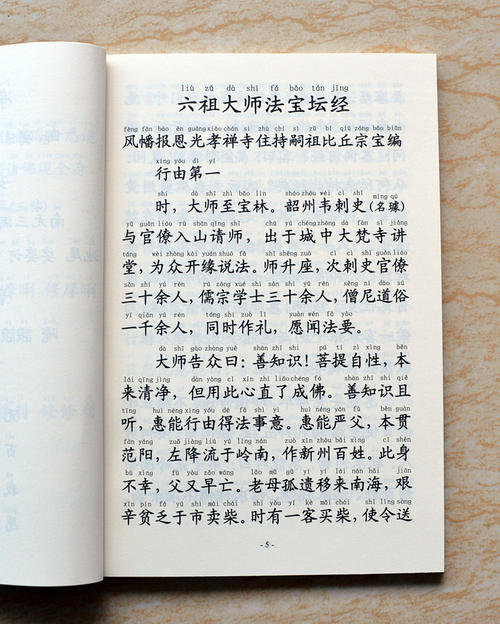 liù zǔ dà shī fǎ bǎo tán jīng
六祖大师法宝坛经
fēng fān bào ēn guāng xiào chán sì zhù chí sì zǔ bǐ qiū zōng bǎo biān
风幡报恩光孝禅寺住持嗣祖比丘宗宝编
xíng yóu dì yī
行由第一
shí dà shī zhì bǎo lín sháo zhōu wéi cì shǐ míng qú
时，大师至宝林。韶州韦刺史（名璩）
yǔ guān liáo rù shān qǐng shī chū yú chéng zhōng dà fàn sì jiǎng
与官僚入山请师，出于城中大梵寺讲
táng wèi zhòng kāi yuán shuō fǎ shī shēng zuò cì cì shǐ guān liáo
堂，为众开缘说法。师升座，次刺史官僚
sān shí yú rén rú zōng xué shì sān shí yú rén sēng ní dào sú
三十余人，儒宗学士三十余人，僧尼道俗
yì qiān yú rén tóng shí zuò lǐ yuàn wén fǎ yào
一千余人，同时作礼，愿闻法要。
dà shī gào zhòng yuē shàn zhī shí pú tí zì xìng běn
大师告众曰：善知识！菩提自性，本
lái qīng jìng dàn yòng cǐ xīn zhí liǎo chéng fó shàn zhī shí qiě
来清净，但用此心直了成佛。善知识且
tīng huì néng xíng yóu dé fǎ shì yì huì néng yán fù běn guàn
听，惠能行由得法事意。惠能严父，本贯
fàn yáng zuǒ jiàng liú yú lǐng nán zuò xīn zhōu bǎi xìng cǐ shēn
范阳，左降流于岭南，作新州百姓。此身
bú xìng fù yòu zǎo wáng lǎo mǔ gū yí yí lái nán hǎi jiān
不幸，父又早亡。老母孤遗移来南海，艰
xīn pín fá yú shì mài chái shí yǒu yí kè mǎi chái shǐ lìng sòng
辛贫乏于市卖柴。时有一客买柴，使令送
- 5 -